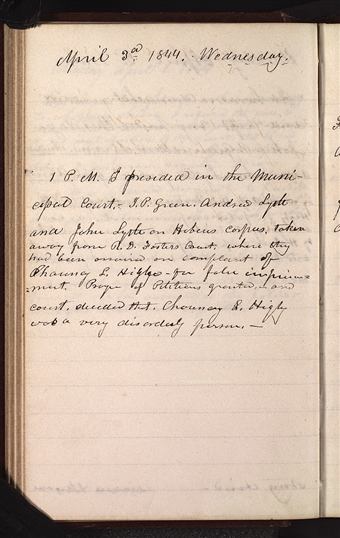 April 3d. 1844. Wednesday.
1 P. M. I presided in the Muni-
cipal Court,- J.P. Green. Andrew Lytle
and John Lytle on Habeus corpus, taken
away from R. D. Fosters Court, where they
had been on complaint of
Chauncy L. Higbe for false imprison-
ment. Prayer of Petitions granted,- and
court, decided that, Chauncy L. Higby
was a very disorderly person.-